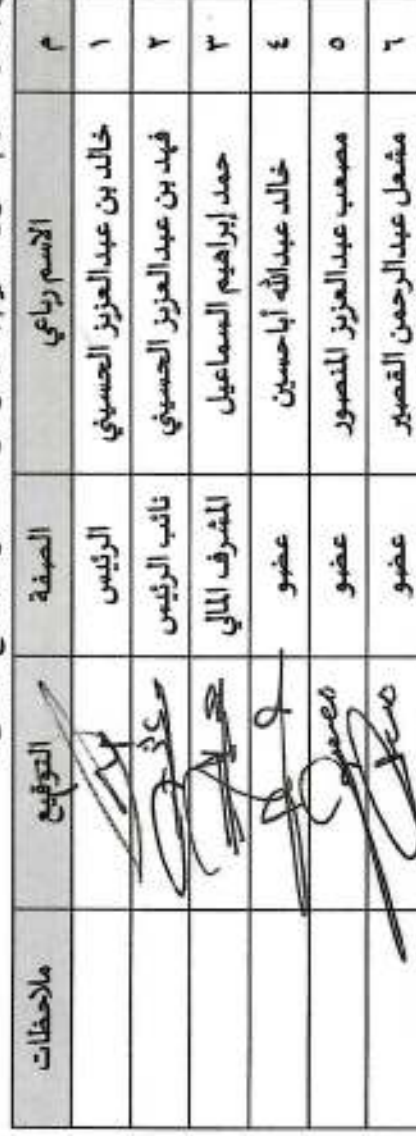 م الاسم رباعي الصفة التوقيع ملاحظات
١ خالد بن عبدالعزيز الحسيني الرئيس
٢ فهد بن عبدالعزيز الحسيني نائب الرئيس
٣ حمد إبراهيم السماعيل المشرف المالي
٤ خالد عبدالله أباحسين عضو
٥ مصعب عبدالعزيز المنصور عضو
٦ مشعل عبدالرحمن القصير عضو